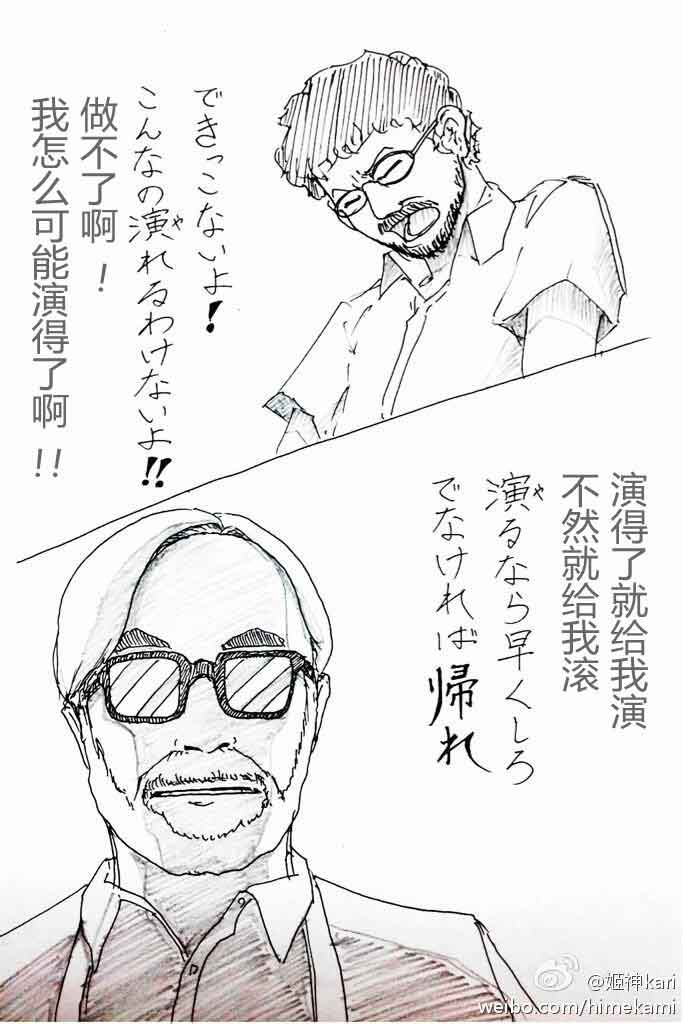 できっこないよ！
こんなの演れるわけないよ！！
や
做不了啊！
我怎么可能演得了啊！！
演得了就给我演
不然就给我滚
演るなら早くしろ
や
でなければ帰れ
@姬神kari
weibo.com/himekami